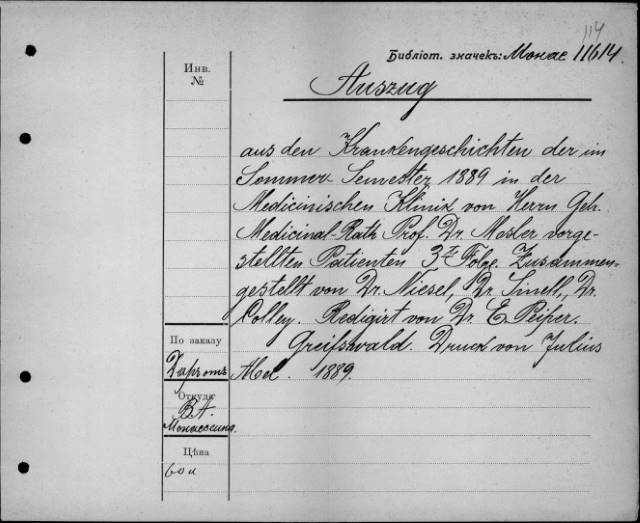 114
Библіот. значекъ: Монас 11614.
Инв.
№
Auszug
aus den Krankengeschichten der im
Sommer Semester 1889 in der
Medicinischen Klinik von Herrn Geh.
Medicinal-Rath Prof. Dr Mosler vorge-
stellten Patienten 3te Folge. Zusammen-
gestellt von Dr. Niesel, Dr. Sinell, Dr.
Colley. Redigirt von Dr. E. Peiper.
Greifswald. Druck von Julius
Abel. 1889.
По заказу
Откуда
В.А.
Монассеина.
Цѣна
60 к